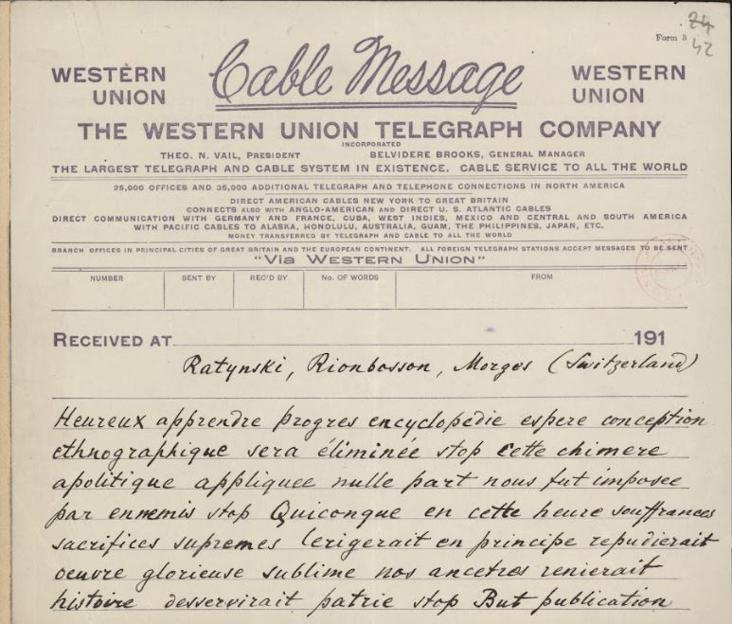 24
Form 3
42
WESTERN UNION
Cable Message
WESTERN UNION
THE WESTERN UNION TELEGRAPH COMPANY
INCORPORATED
THEO. N. VAIL, PRESIDENT BELVIDERE BROOKS, GENERAL MANAGER
THE LARGEST TELEGRAPH AND CABLE SYSTEM IN EXISTENCE. CABLE SERVICE TO ALL THE WORLD
25,000 OFFICES AND 35,000 ADDITIONAL TELEGRAPH AND TELEPHONE CONNECTIONS IN NORTH AMERICA
DIRECT AMERICAN CABLES NEW YORK TO GREAT BRITAIN
CONNECTS ALSO WITH ANGLO-AMERICAN AND DIRECT U. S. ATLANTIC CABLES
DIRECT COMMUNICATION WITH GERMANY AND FRANCE, CUBA, WEST INDIES, MEXICO AND CENTRAL AND SOUTH AMERICA
WITH PACIFIC CABLES TO ALASKA, HONOLULU, AUSTRALIA, GUAM, THE PHILIPPINES, JAPAN, ETC.
MONEY TRANSFERRED BY TELEGRAPH AND CABLE TO ALL THE WORLD
BRANCH OFFICES IN PRINCIPAL CITIES OF GREAT BRITAIN AND THE EUROPEAN CONTINENT. ALL FOREIGN TELEGRAPH STATIONS ACCEPT MESSAGES TO BE SENT
"VIA WESTERN UNION"
NUMBER SENT BY REC'D BY No. OF WORDS FROM
RECEIVED AT 191
Ratynski, Rionbosson, Morges (Switzerland)
Heureux apprendre progres encyclopédie espere conception
ethnographique sera éliminée stop cette chimere
apolitique appliquee nulle part nous fut imposee
par ennemis stop Quiconque en cette heure souffrances
sacrifices supremes l'erigerait en principe repudierait
oeuvre glorieuse sublime nos ancetres renierait
histoire desservirait patrie stop But publication